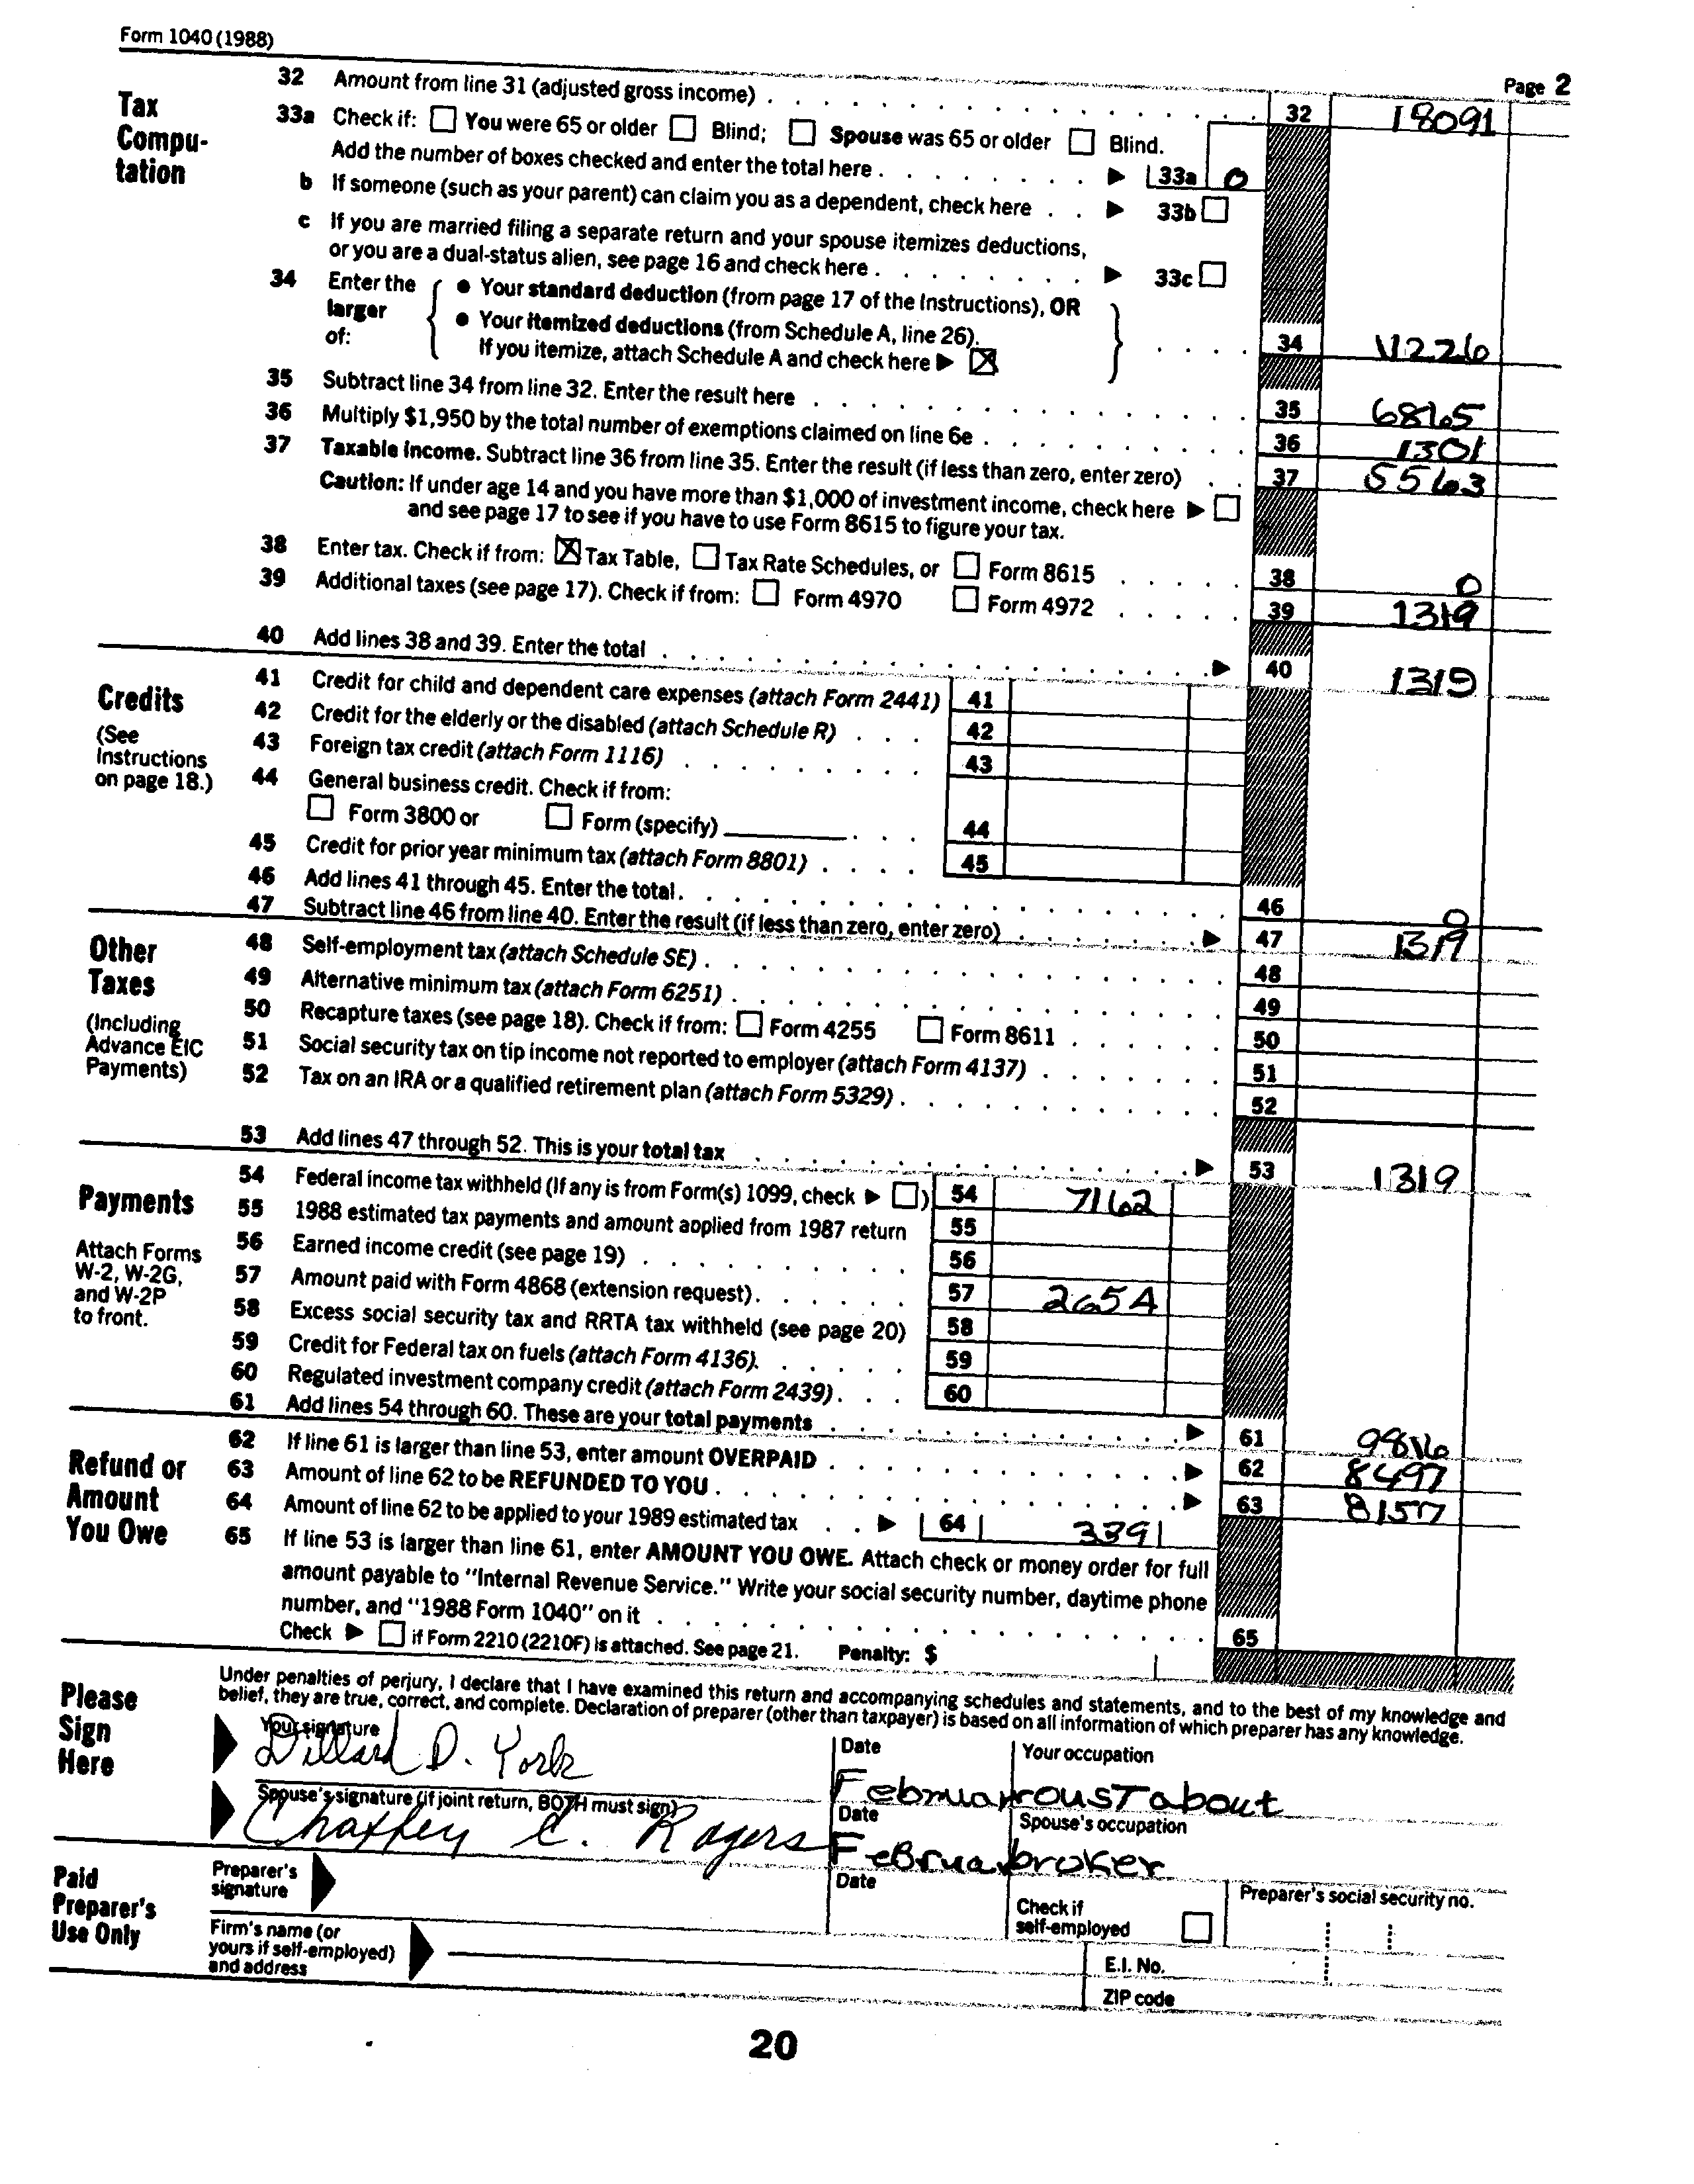 Form 1040 (1988)
Page 2
Tax Compu-tation
32 Amount from line 31 (adjusted gross income) . . . 32 18091
33a Check if: You were 65 or older Blind; Spouse was 65 or older Blind.
Add the number of boxes checked and enter the total here . . . 33a 0
b If someone (such as your parent) can claim you as a dependent, check here . . 33b
c If you are married filing a separate return and your spouse itemizes deductions,
or you are a dual-status alien, see page 16 and check here . . . 33c
34 Enter the larger of:
• Your standard deduction (from page 17 of the Instructions), OR
• Your itemized deductions (from Schedule A, line 26).
If you itemize, attach Schedule A and check here ☒ . . . . 34 11226
35 Subtract line 34 from line 32. Enter the result here . . . 35 6865
36 Multiply $1,950 by the total number of exemptions claimed on line 6e . . . 36 1301
37 Taxable income. Subtract line 36 from line 35. Enter the result (if less than zero, enter zero) . . 37 5563
Caution: If under age 14 and you have more than $1,000 of investment income, check here
and see page 17 to see if you have to use Form 8615 to figure your tax.
38 Enter tax. Check if from: ☒ Tax Table, Tax Rate Schedules, or Form 8615 . . . 38 0
39 Additional taxes (see page 17). Check if from: Form 4970 Form 4972 . . . 39 1319
40 Add lines 38 and 39. Enter the total . . . 40 1319
Credits
(See Instructions on page 18.)
41 Credit for child and dependent care expenses (attach Form 2441) 41
42 Credit for the elderly or the disabled (attach Schedule R) . . . 42
43 Foreign tax credit (attach Form 1116) . . . 43
44 General business credit. Check if from:
Form 3800 or Form (specify) . . . 44
45 Credit for prior year minimum tax (attach Form 8801) . . . . 45
46 Add lines 41 through 45. Enter the total . . . 46 0
47 Subtract line 46 from line 40. Enter the result (if less than zero, enter zero) . . . 47 1319
Other Taxes
(Including Advance EIC Payments)
48 Self-employment tax (attach Schedule SE) . . . 48
49 Alternative minimum tax (attach Form 6251) . . . 49
50 Recapture taxes (see page 18). Check if from: Form 4255 Form 8611 . . . 50
51 Social security tax on tip income not reported to employer (attach Form 4137) . . . 51
52 Tax on an IRA or a qualified retirement plan (attach Form 5329) . . . 52
53 Add lines 47 through 52. This is your total tax . . . 53 1319
Payments
Attach Forms W-2, W-2G, and W-2P to front.
54 Federal income tax withheld (If any is from Form(s) 1099, check ) 54 7162
55 1988 estimated tax payments and amount applied from 1987 return 55
56 Earned income credit (see page 19) . . . 56
57 Amount paid with Form 4868 (extension request) . . . 57 2654
58 Excess social security tax and RRTA tax withheld (see page 20) 58
59 Credit for Federal tax on fuels (attach Form 4136). . . . 59
60 Regulated investment company credit (attach Form 2439) . . . 60
61 Add lines 54 through 60. These are your total payments . . . 61 9816
Refund or Amount You Owe
62 If line 61 is larger than line 53, enter amount OVERPAID . . . 62 8497
63 Amount of line 62 to be REFUNDED TO YOU . . . 63 8157
64 Amount of line 62 to be applied to your 1989 estimated tax . . 64 3391
65 If line 53 is larger than line 61, enter AMOUNT YOU OWE. Attach check or money order for full
amount payable to "Internal Revenue Service." Write your social security number, daytime phone
number, and "1988 Form 1040" on it . . . 65
Check if Form 2210 (2210F) is attached. See page 21. Penalty: $
Please Sign Here
Under penalties of perjury, I declare that I have examined this return and accompanying schedules and statements, and to the best of my knowledge and
belief, they are true, correct, and complete. Declaration of preparer (other than taxpayer) is based on all information of which preparer has any knowledge.
Your signature Date Your occupation
Dillard D. York Februar roustabout
Spouse's signature (if joint return, BOTH must sign) Date Spouse's occupation
Chaffey C. Rogers Februar broker
Paid Preparer's Use Only
Preparer's signature Date Check if self-employed Preparer's social security no.
Firm's name (or yours if self-employed) and address
E.I. No.
ZIP code
20